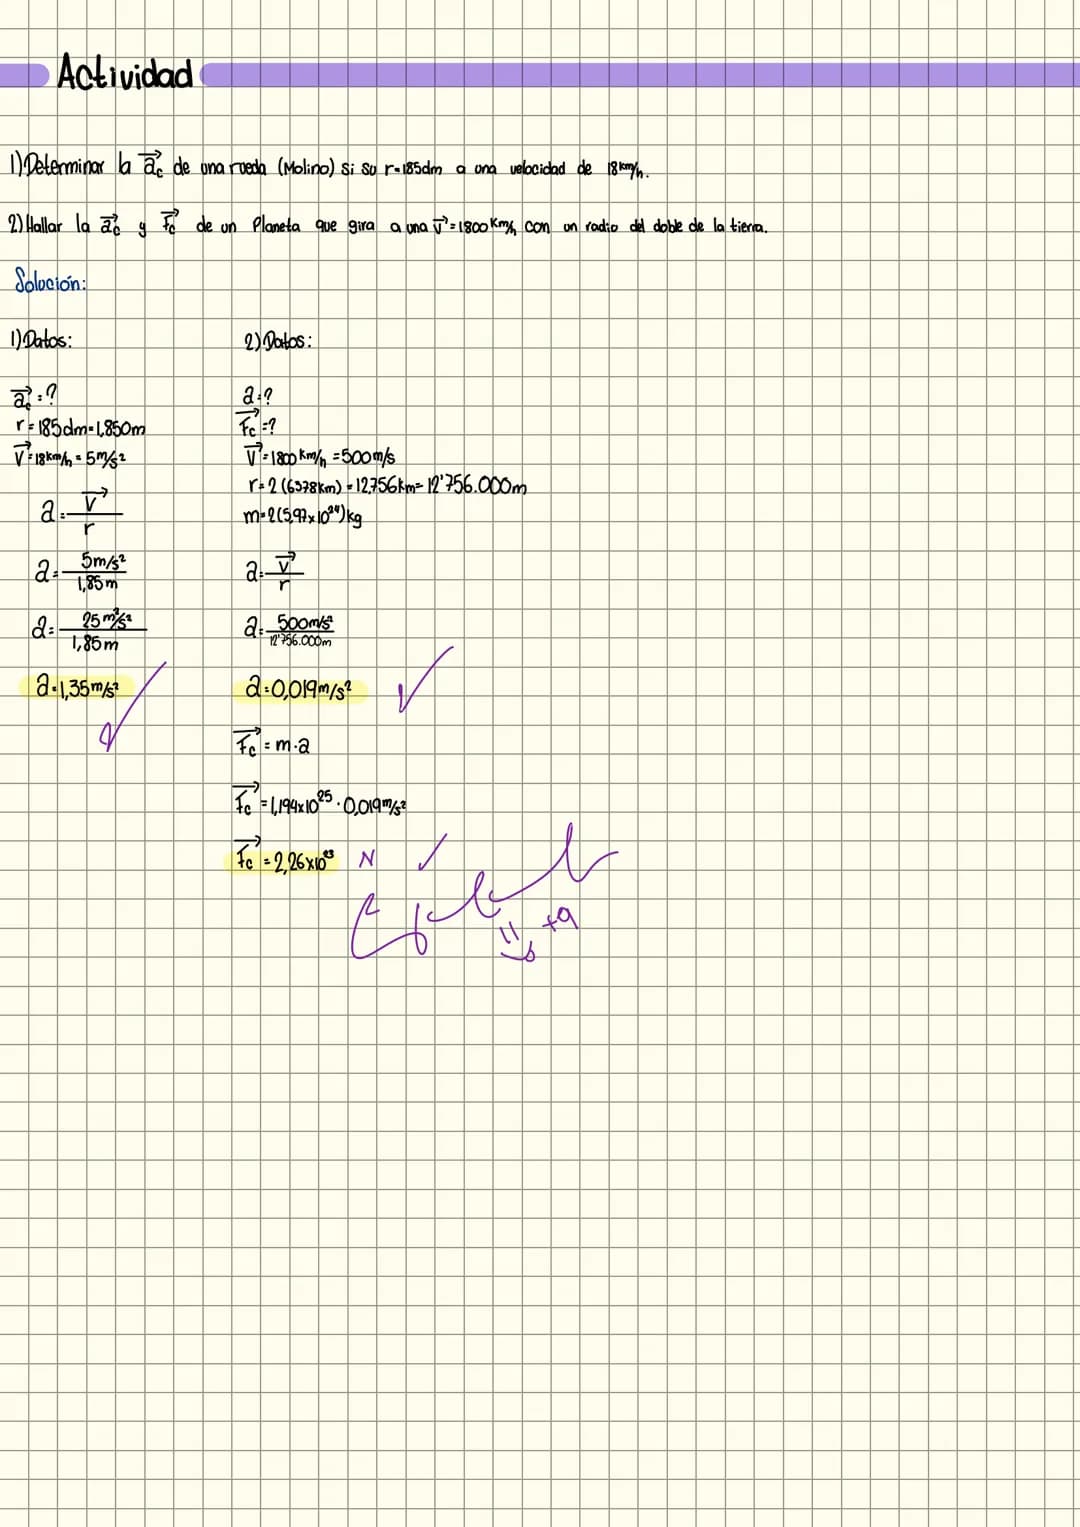 Actividad
1) Determinar la a⃗c de una rueda (Molino) si su r=185dm a una velocidad de 18km/h.
2) Hallar la a⃗c y F⃗c de un Planeta que gira a una v⃗=1800 Km/h con un radio del doble de la tierra.
Solución:
1) Datos:
a⃗c=?
r=185dm=1,850m
V⃗=18km/h=5m/s²
a=V⃗/r
a=5m/s²/1,85m
a=25m²/s²/1,85m
a=1,35m/s²
2) Datos:
a=?
F⃗c=?
V⃗=1800 km/h=500m/s
r=2(6378km)=12,756km=12'756.000m
m=2(5,97x10²⁴)kg
a=V⃗/r
a=500m/s²/12'756.000m
a=0,019m/s²
F⃗c=m·a
F⃗c=1,194x10²⁵·0,019m/s²
F⃗c=2,26x10²³ N
+9